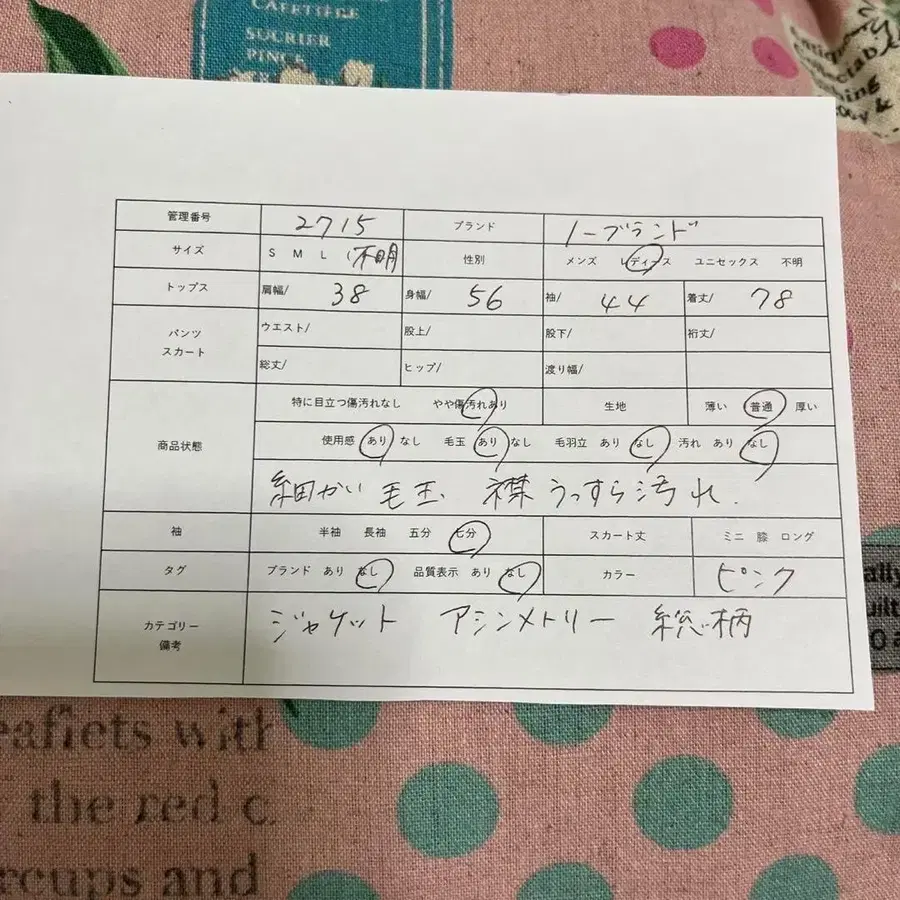 CAFETIÈRE
SUCRIER
管理番号 2715 ブランド ノーブランド
サイズ S M L (不明 性別 メンズ レディース ユニセックス 不明
トップス 肩幅/ 38 身幅/ 56 袖/ 44 着丈/ 78
パンツ スカート ウエスト/ 股上/ 股下/ 裄丈/
総丈/ ヒップ/ 渡り幅/
商品状態 特に目立つ傷汚れなし やや傷汚れあり 生地 薄い 普通 厚い
使用感 あり なし 毛玉 あり なし 毛羽立 あり なし 汚れ あり なし
細かい毛玉 襟うっすら汚れ.
袖 半袖 長袖 五分 七分 スカート丈 ミニ 膝 ロング
タグ ブランド あり なし 品質表示 あり なし カラー ピンク
カテゴリー 備考 ジャケット アシンメトリー 総柄
with
the red c
and